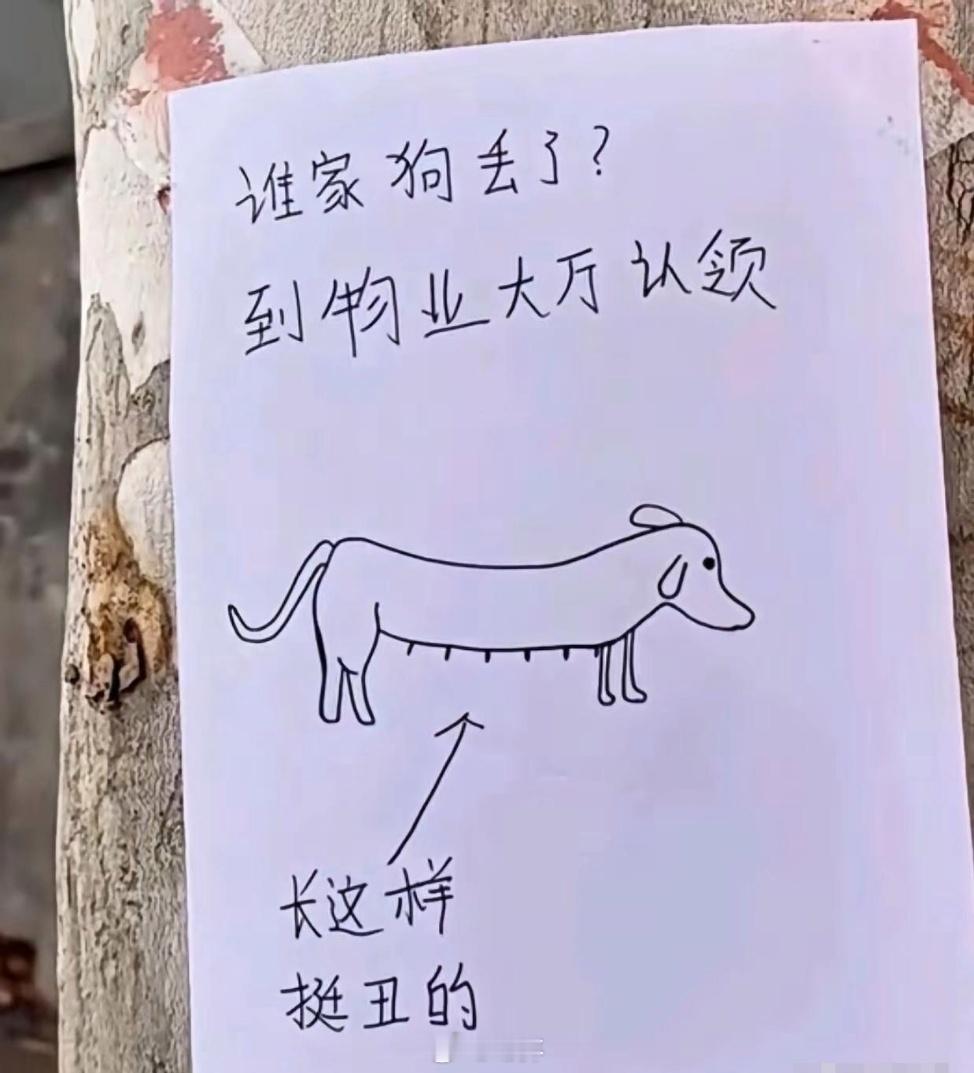 谁家狗丢了?
到物业大厅认领
长这样
挺丑的